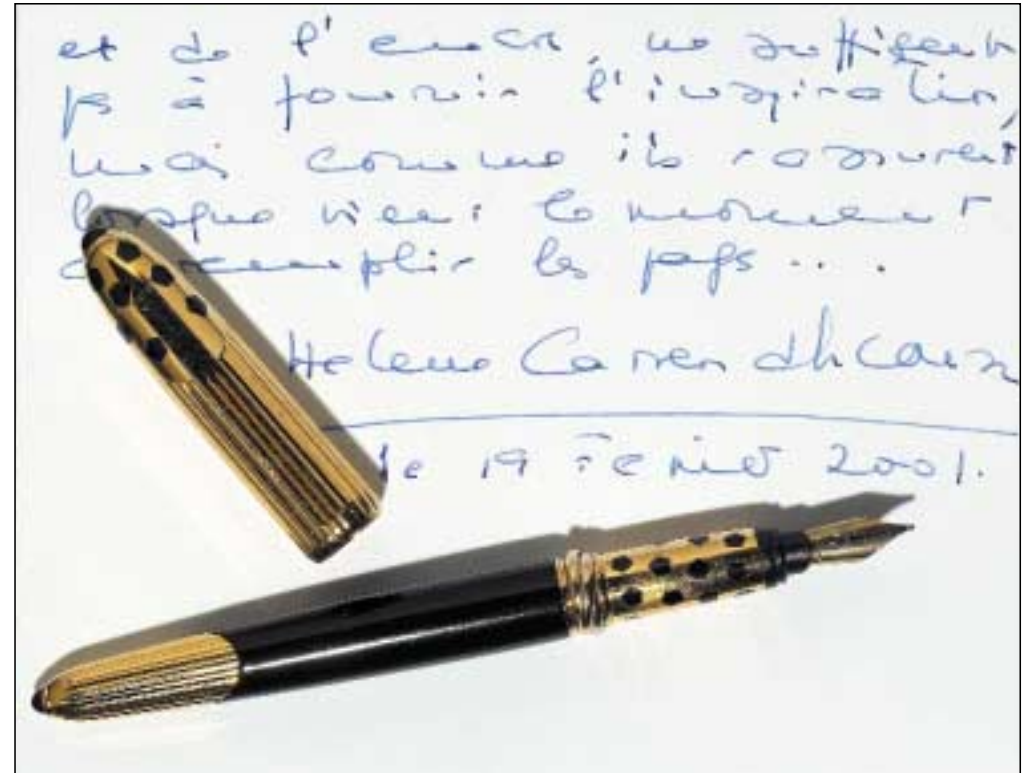 et de l'encre, ne suffisent
pas à fournir l'inspiration,
mais comme ils rassurent
lorsque vient le moment
remplir les pages ....
Helene Carrere d'Encausse
le 19 Février 2001.